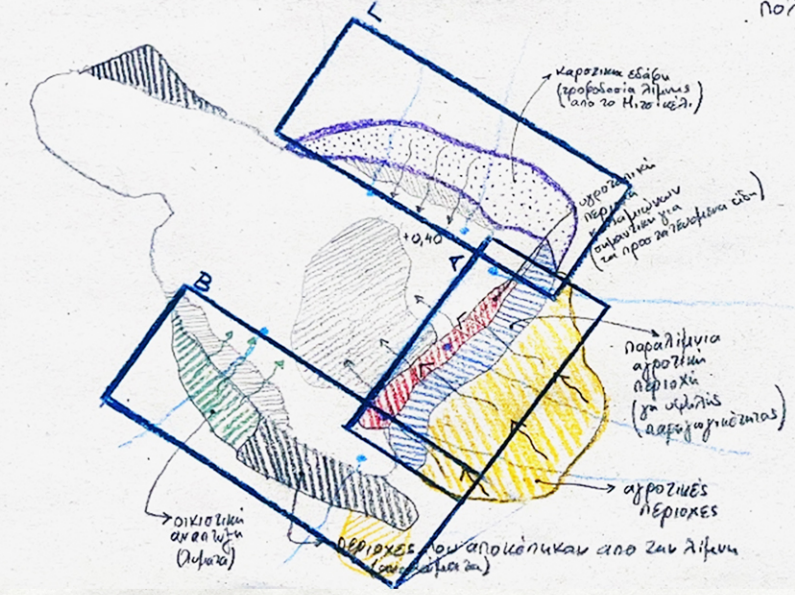 L
πο
καρστικά εδάφη
(τροφοδοσία λίμνης
από το Μιτσικέλι)
υγροτοπική
περιοχή
καλαμιώνων
σημαντική για
τα προστατευόμενα είδη)
+0,40
A
B
παραλίμνια
αγροτική
περιοχή
(γη υψηλής
παραγωγικότητας)
αγροτικές
περιοχές
οικιστική
ανάπτυξη
(λύματα)
περιοχές που αποκόπηκαν από την λίμνη